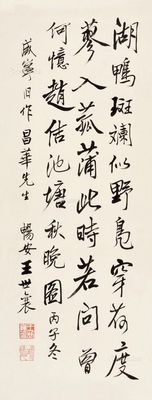 湖鴨斑斕似野凫穿荷度
蓼入菰蒲此時若问曾
何憶趙佶池塘秋晚圖丙子冬
咸寧旧作昌華先生
暢安王世襄